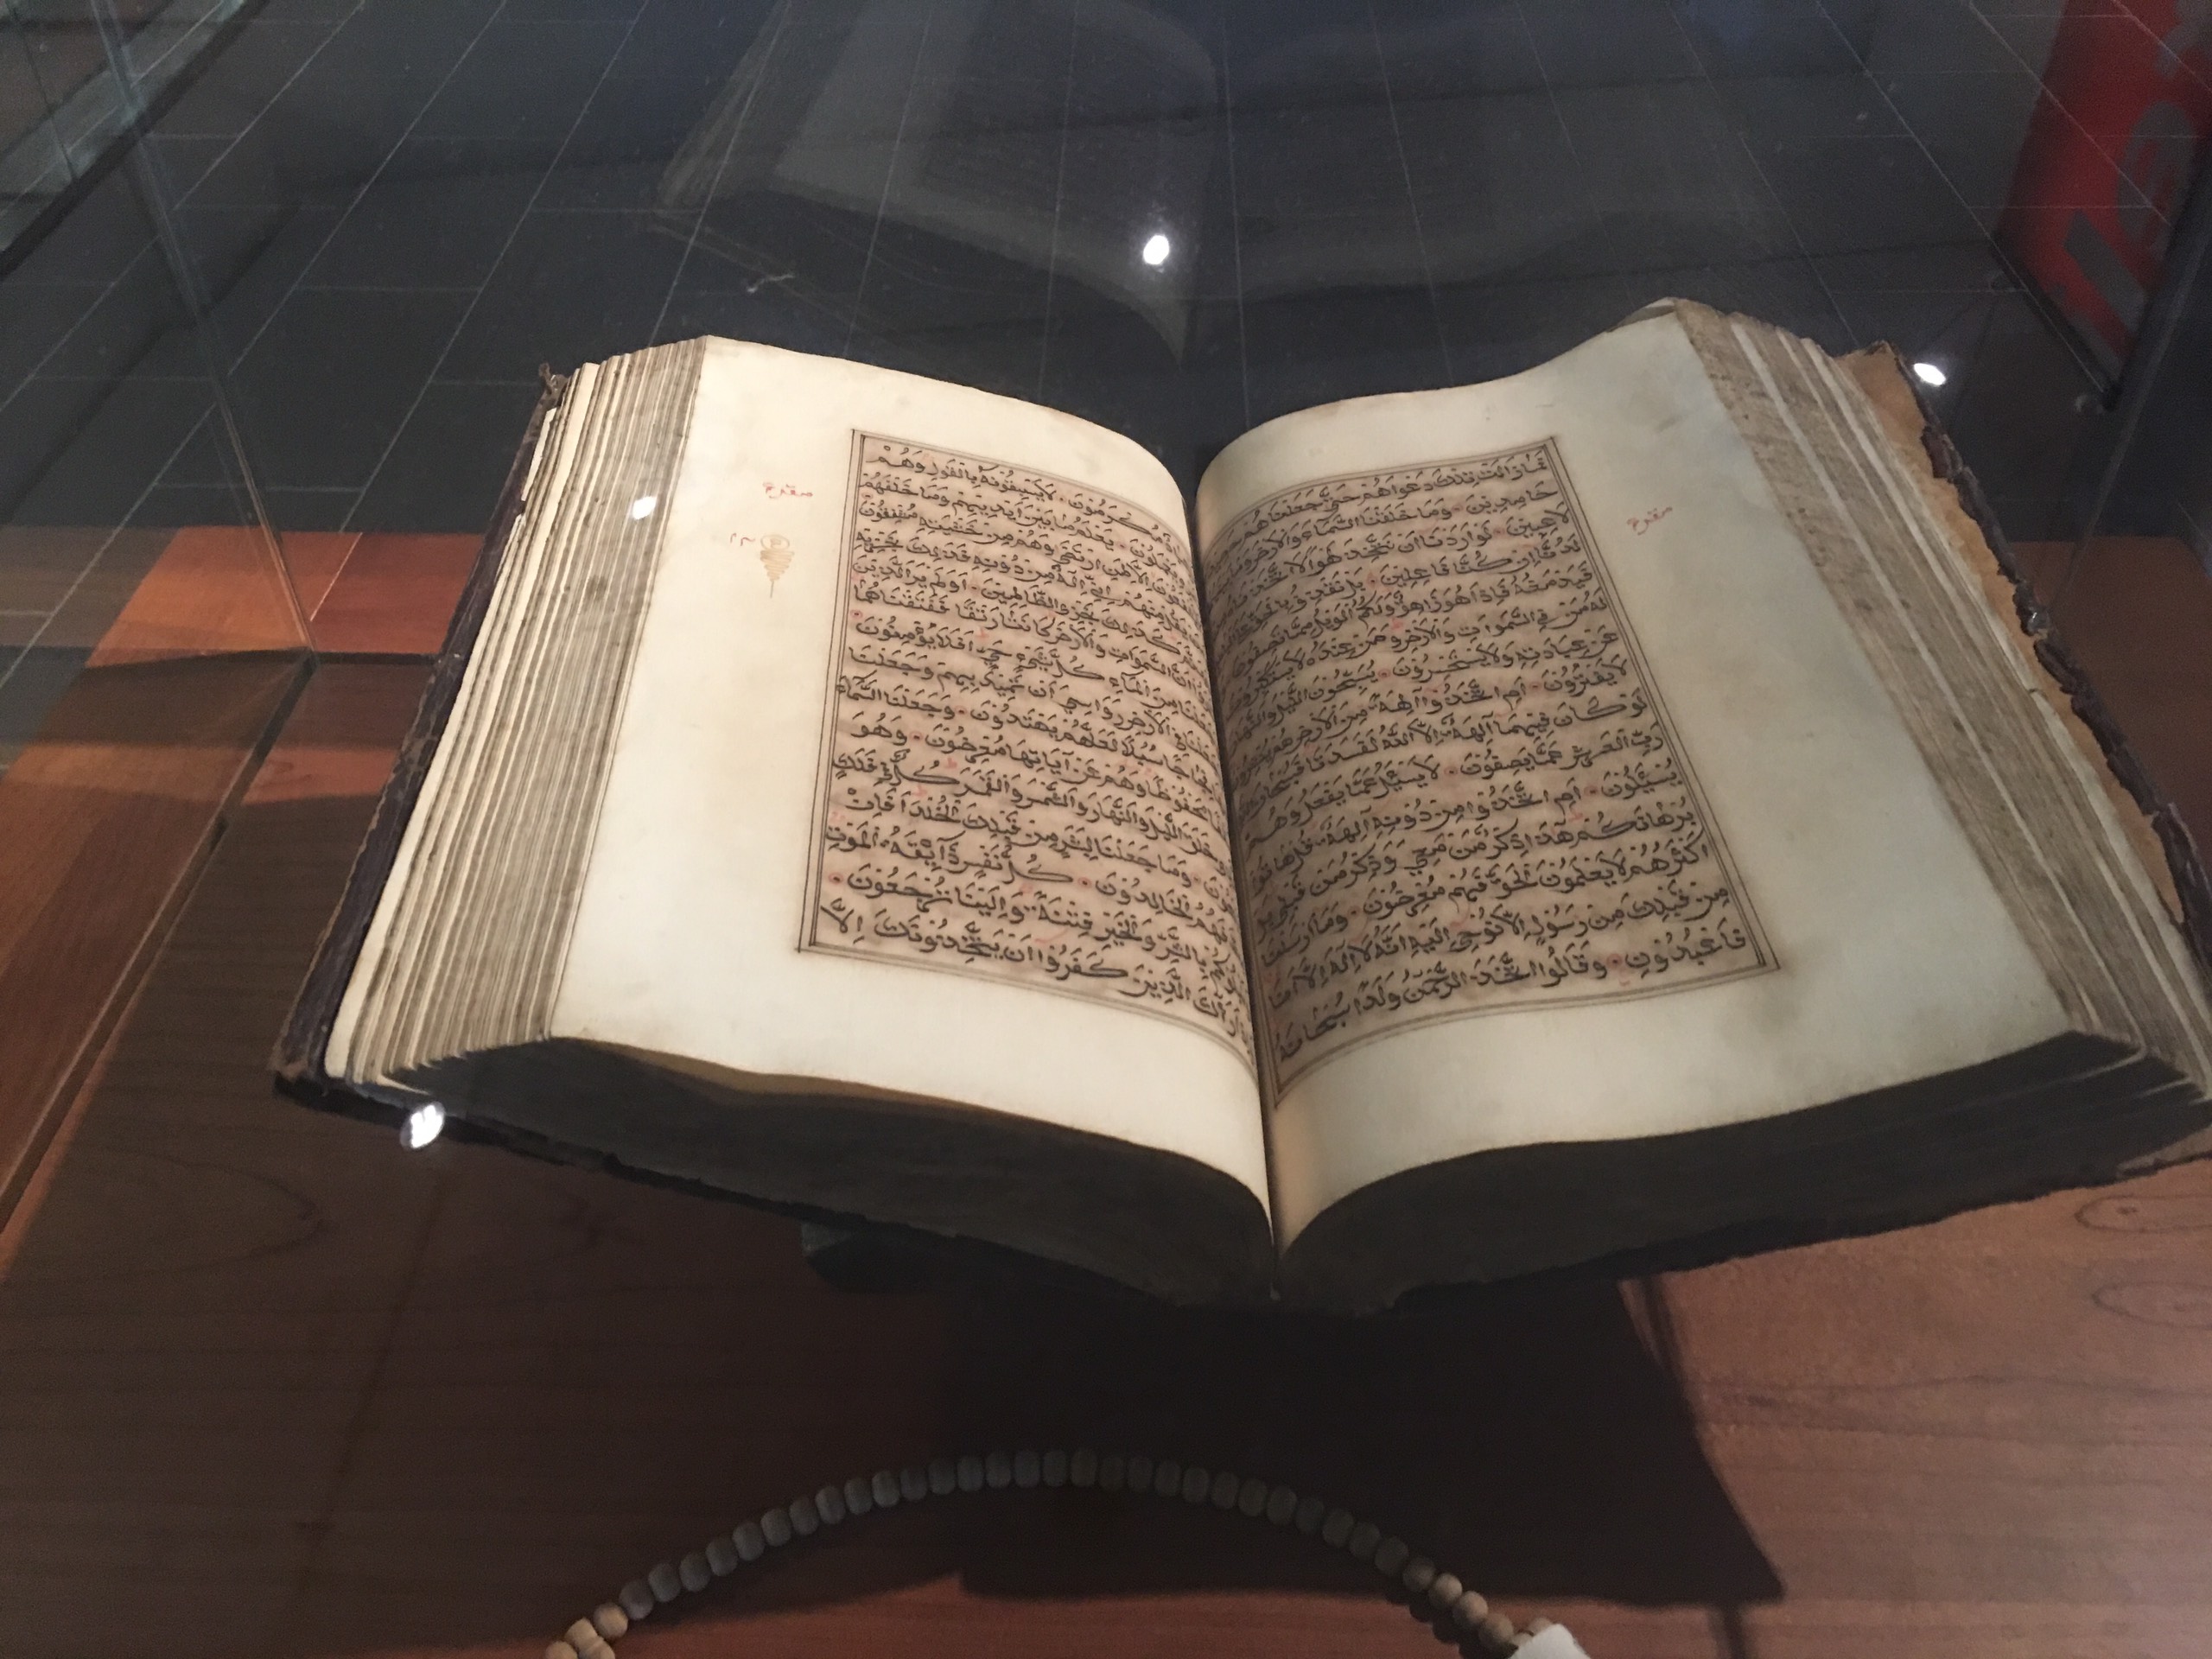 فَمَا زَالَتْ تِلْكَ دَعْوَاهُمْ حَتَّى جَعَلْنَاهُمْ
خَامِدِينَ وَمَا خَلَقْنَا السَّمَاءَ وَالْاَرْضَ وَمَا
لَاعِبِينَ لَوْ اَرَدْنَا اَنْ نَتَّخِذَ لَهْوًا لَاتَّخَذْنَاهُ
لَدُنَّا اِنْ كُنَّا فَاعِلِينَ بَلْ نَقْذِفُ بِالْحَقِّ
فَيَدْمَغُهُ فَاِذَا هُوَ زَاهِقٌ وَلَكُمُ الْوَيْلُ مِمَّا تَصِفُونَ
لَهُ مَنْ فِي السَّمَوَاتِ وَالْاَرْضِ وَمَنْ عِنْدَهُ لَا يَسْتَكْبِرُونَ
عَنْ عِبَادَتِهِ وَلَا يَسْتَحْسِرُونَ يُسَبِّحُونَ اللَّيْلَ وَالنَّهَارَ
لَا يَفْتُرُونَ اَمِ اتَّخَذُوا آلِهَةً مِنَ الْاَرْضِ هُمْ
لَوْ كَانَ فِيهِمَا آلِهَةٌ اِلَّا اللَّهُ لَفَسَدَتَا فَسُبْحَانَ
رَبِّ الْعَرْشِ عَمَّا يَصِفُونَ لَا يُسْئَلُ عَمَّا يَفْعَلُ وَهُمْ
يُسْئَلُونَ اَمِ اتَّخَذُوا مِنْ دُونِهِ آلِهَةً قُلْ هَاتُوا
بُرْهَانَكُمْ هَذَا ذِكْرُ مَنْ مَعِيَ وَذِكْرُ مَنْ قَبْلِي بَلْ
اَكْثَرُهُمْ لَا يَعْلَمُونَ الْحَقَّ فَهُمْ مُعْرِضُونَ وَمَا اَرْسَلْنَا
مِنْ قَبْلِكَ مِنْ رَسُولٍ اِلَّا نُوحِي اِلَيْهِ اَنَّهُ لَا اِلَهَ اِلَّا اَنَا
فَاعْبُدُونِ وَقَالُوا اتَّخَذَ الرَّحْمَنُ وَلَدًا سُبْحَانَهُ
مُكْرَمُونَ لَا يَسْبِقُونَهُ بِالْقَوْلِ وَهُمْ
يَعْمَلُونَ يَعْلَمُ مَا بَيْنَ اَيْدِيهِمْ وَمَا خَلْفَهُمْ
يَشْفَعُونَ اِلَّا لِمَنِ ارْتَضَى وَهُمْ مِنْ خَشْيَتِهِ مُشْفِقُونَ
يَقُلْ مِنْهُمْ اِنِّي اِلَهٌ مِنْ دُونِهِ فَذَلِكَ نَجْزِيهِ
كَذَلِكَ نَجْزِي الظَّالِمِينَ اَوَلَمْ يَرَ الَّذِينَ
اَنَّ السَّمَوَاتِ وَالْاَرْضَ كَانَتَا رَتْقًا فَفَتَقْنَاهُمَا
مِنَ الْمَاءِ كُلَّ شَيْءٍ حَيٍّ اَفَلَا يُؤْمِنُونَ
فِي الْاَرْضِ رَوَاسِيَ اَنْ تَمِيدَ بِهِمْ وَجَعَلْنَا
فِجَاجًا سُبُلًا لَعَلَّهُمْ يَهْتَدُونَ وَجَعَلْنَا السَّمَاءَ
مَحْفُوظًا وَهُمْ عَنْ آيَاتِهَا مُعْرِضُونَ وَهُوَ
خَلَقَ اللَّيْلَ وَالنَّهَارَ وَالشَّمْسَ وَالْقَمَرَ كُلٌّ فِي فَلَكٍ
وَمَا جَعَلْنَا لِبَشَرٍ مِنْ قَبْلِكَ الْخُلْدَ اَفَاِنْ
فَهُمُ الْخَالِدُونَ كُلُّ نَفْسٍ ذَائِقَةُ الْمَوْتِ
بِالشَّرِّ وَالْخَيْرِ فِتْنَةً وَاِلَيْنَا تُرْجَعُونَ
رَآكَ الَّذِينَ كَفَرُوا اَنْ يَتَّخِذُونَكَ اِلَّا